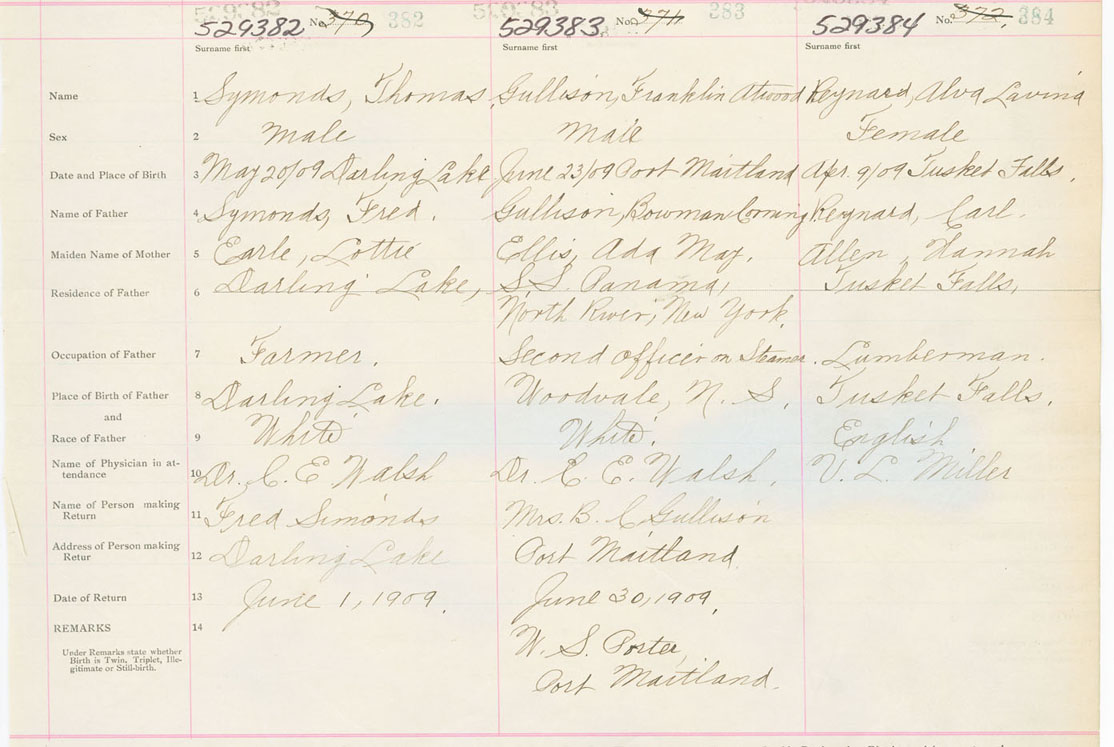 529382 No. 370 382 529383 No. 371 383 529384 No. 372. 384
Surname first Surname first Surname first
Name 1 Symonds, Thomas Gullison, Franklin Atwood Reynard, Alva Lavina
Sex 2 Male Male Female
Date and Place of Birth 3 May 20/09 Darling Lake June 23/09 Port Maitland Apr. 9/09 Tusket Falls.
Name of Father 4 Symonds, Fred. Gullison, Bowman Corning Reynard, Carl.
Maiden Name of Mother 5 Earle, Lottie Ellis, Ada May. Allen, Hannah
Residence of Father 6 Darling Lake, S.S. Panama, Tusket Falls.
North River, New York.
Occupation of Father 7 Farmer. Second officer on Steamer. Lumberman.
Place of Birth of Father 8 Darling Lake. Woodvale, N. S. Tusket Falls.
and
Race of Father 9 White White. English
Name of Physician in at-
tendance 10 Dr. C. E Walsh Dr. E. E. Walsh, V. L. Miller
Name of Person making
Return 11 Fred Simonds Mrs. B. C Gullison
Address of Person making
Retur 12 Darling Lake Port Maitland
Date of Return 13 June 1, 1909. June 30, 1909.
REMARKS 14
Under Remarks state whether
Birth is Twin, Triplet, Ille-
gitimate or Still-birth.
W. S. Porter,
Port Maitland.